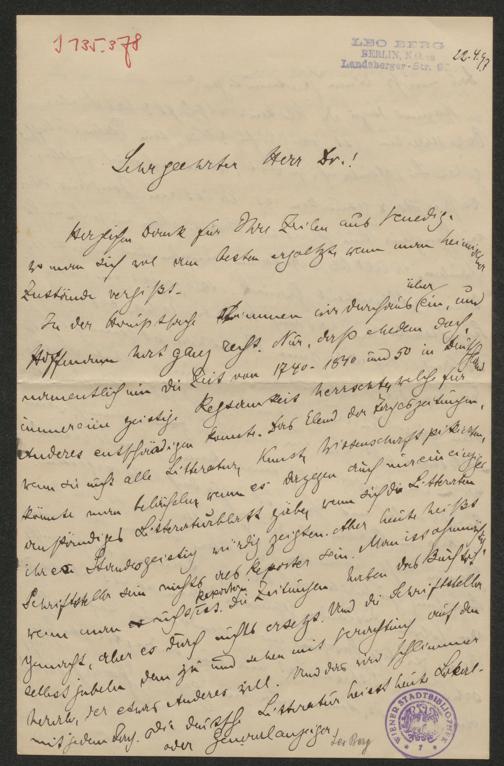 J 135.378
LEO BERG
BERLIN, N.
Landsberger-Str.
22.4.97
Sehr geehrter Herr Dr.!
Herzlichen Dank für Ihre Zeilen aus Venedig.
wo man sich wol am besten ergötzt, wenn man heimischer
Zustände vergisst.
In der Hauptsache stimmen wir durchaus überein, und
Hoffmann hat ganz recht. Nur, dass ehedem doch,
namentlich um die Zeit von 1740-1840 und 50 in Deutschland
immer eine geistige Regsamkeit herrschte, welche für
Anderes entschädigen konnte. Das Elend der Tageszeitungen,
wenn sie nicht alle Litteratur, Kunst, Wissenschaft
könnte man belächeln, wenn es dagegen auch nur ein einziges
anständiges Litteraturblatt gäbe, wenn sich die Litteraten
ihres Standes geistig würdig zeigten. Aber heute heisst
Schriftsteller sein nichts als Reporter sein. Man ist ohnmächtig
wenn man nicht Reporter ist. Die Zeitungen haben das Buch
gemacht, aber es durch nichts ersetzt. Und die Schriftsteller
selbst jubeln dem zu und sehen mit Verachtung auf den
herab, der etwas Anderes will. Und das wird schlimmer
mit jedem Tag. Die deutsche Litteratur heisst heute Lokal-
oder Generalanzeiger.
Leo Berg
WIENER STADTBIBLIOTHEK